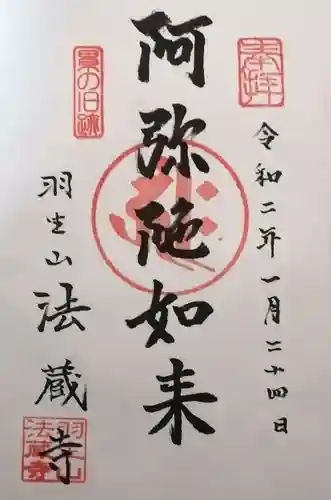 奉拝
令和二年一月二十四日
阿弥陀如来
景の旧跡
羽生山
法蔵寺
羽生山
法蔵寺